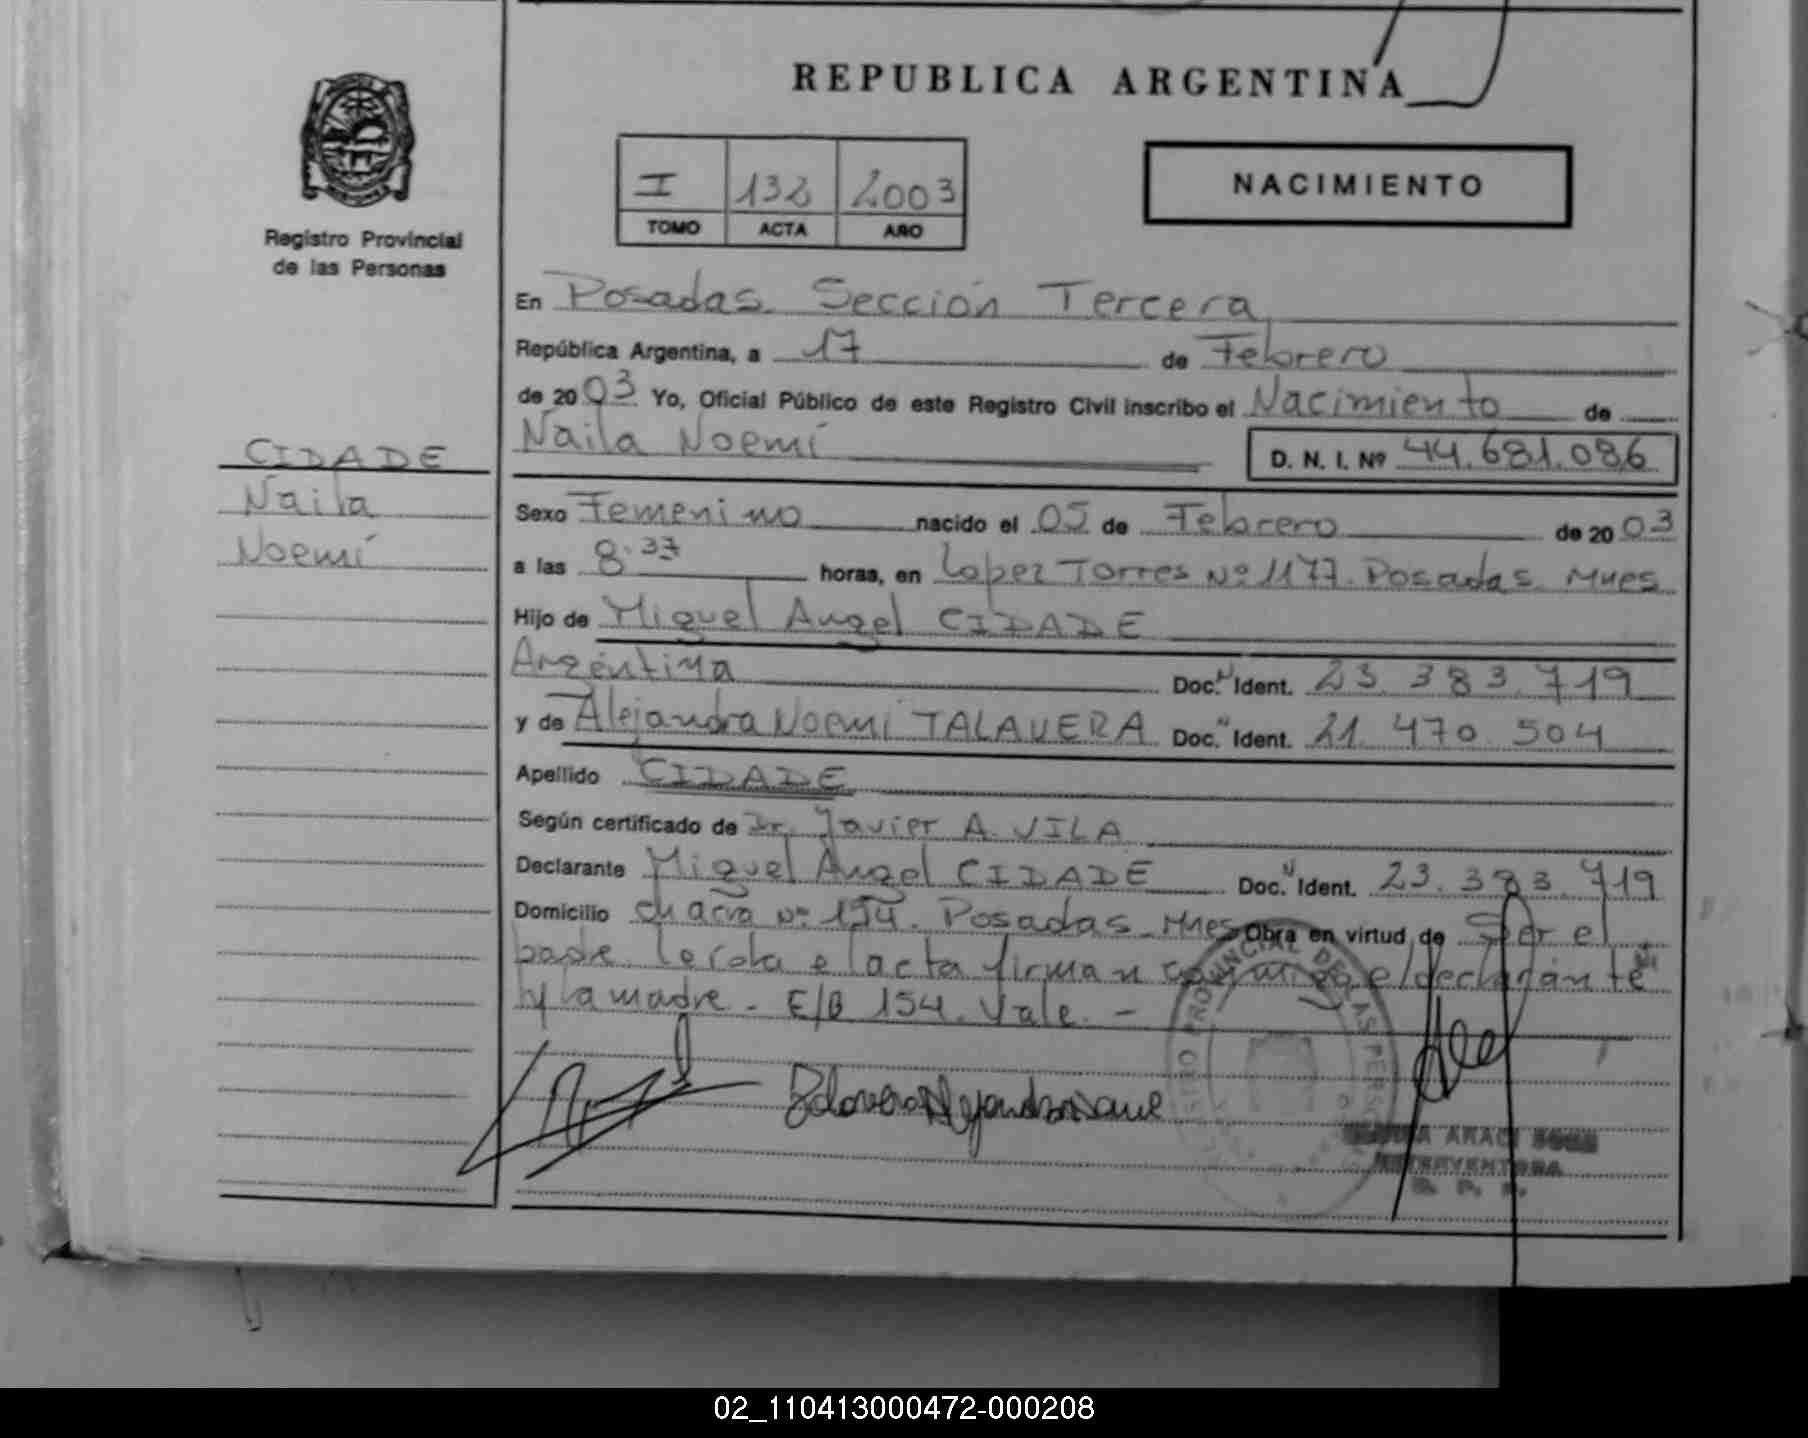 REPUBLICA ARGENTINA
I 132 2003
TOMO ACTA AÑO
NACIMIENTO
Registro Provincial
de las Personas
CIDADE
Naila
Noemí
En Posadas. Sección Tercera
República Argentina, a 17 de Febrero
de 2003 Yo, Oficial Público de este Registro Civil inscribo el Nacimiento de
Naila Noemí D. N. I. Nº 44.681.086
Sexo Femenino nacido el 05 de Febrero de 2003
a las 8:37 horas, en Lopez Torres Nº 1177. Posadas. Mnes
Hijo de Miguel Angel CIDADE
Argentina Doc. Ident. 23.383.719
y de Alejandra Noemí TALAVERA Doc. Ident. 21.470.504
Apellido CIDADE
Según certificado de Dr. Javier A. VILA
Declarante Miguel Angel CIDADE Doc. Ident. 23.383.719
Domicilio chacra Nº 154. Posadas. Mnes Obra en virtud de Ser el
padre. leida el acta firman conmigo el declarante
y la madre. E/B 154. Vale. -
02_110413000472-000208